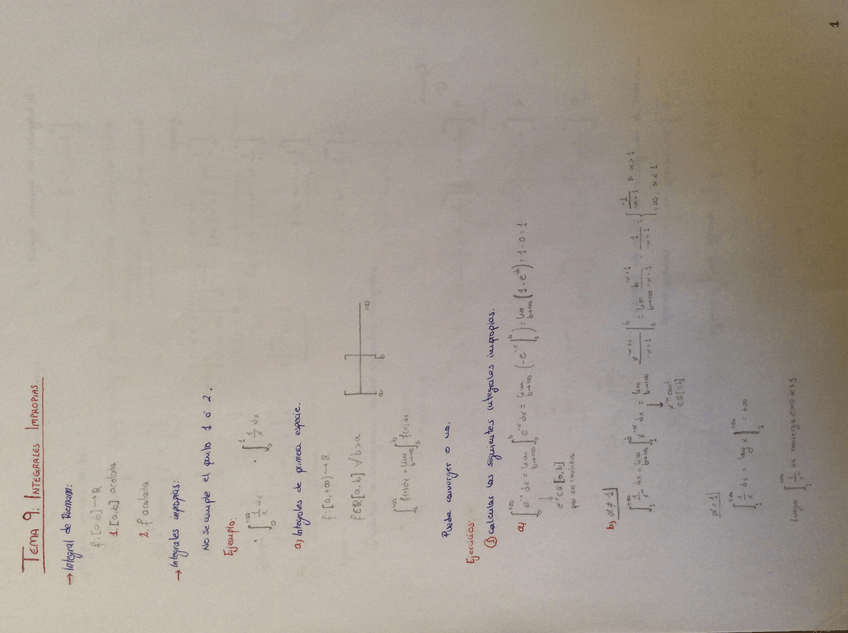 TEMA 9: INTEGRALES IMPROPIAS
→ Integral de Riemann:
f: [a,b] → ℝ
1. [a,b] acotado
2. f acotada
→ Integrales impropias:
No se cumple el punto 1 ó 2.
Ejemplo:
· ∫_0^{+∞} 1/x dx · ∫_0^1 1/x dx
a) Integrales de primera especie.
f: [a,+∞) → ℝ
f ∈ R[a,b] ∀b>a
a b +∞
∫_a^{+∞} f(x)dx = lim_{b→+∞} ∫_a^b f(x)dx
Puede converger o no.
Ejercicios:
① Calcular las siguientes integrales impropias.
a) ∫_0^{+∞} e^{-x} dx = lim_{b→+∞} ∫_0^b e^{-x} dx = lim_{b→+∞} (-e^{-x} |_0^b) = lim_{b→+∞} (1-e^{-b}) = 1-0 = 1
e^{-x} ∈ R[a,b]
por ser continua
b) α ≠ 1
∫_1^{+∞} 1/x^α dx = lim_{b→+∞} ∫_1^b x^{-α} dx = lim_{b→+∞} x^{-α+1}/(-α+1) |_1^b = lim_{b→+∞} b^{-α+1}/(-α+1) - 1/(-α+1) = { -1/(-α+1), α>1
+∞, α<1
x^{-α} cont
∈ R[1,b]
α = 1
∫_1^{+∞} 1/x dx = log x |_1^{+∞} = +∞
Luego ∫_1^{+∞} 1/x^α dx converge ⟺ α>1
1